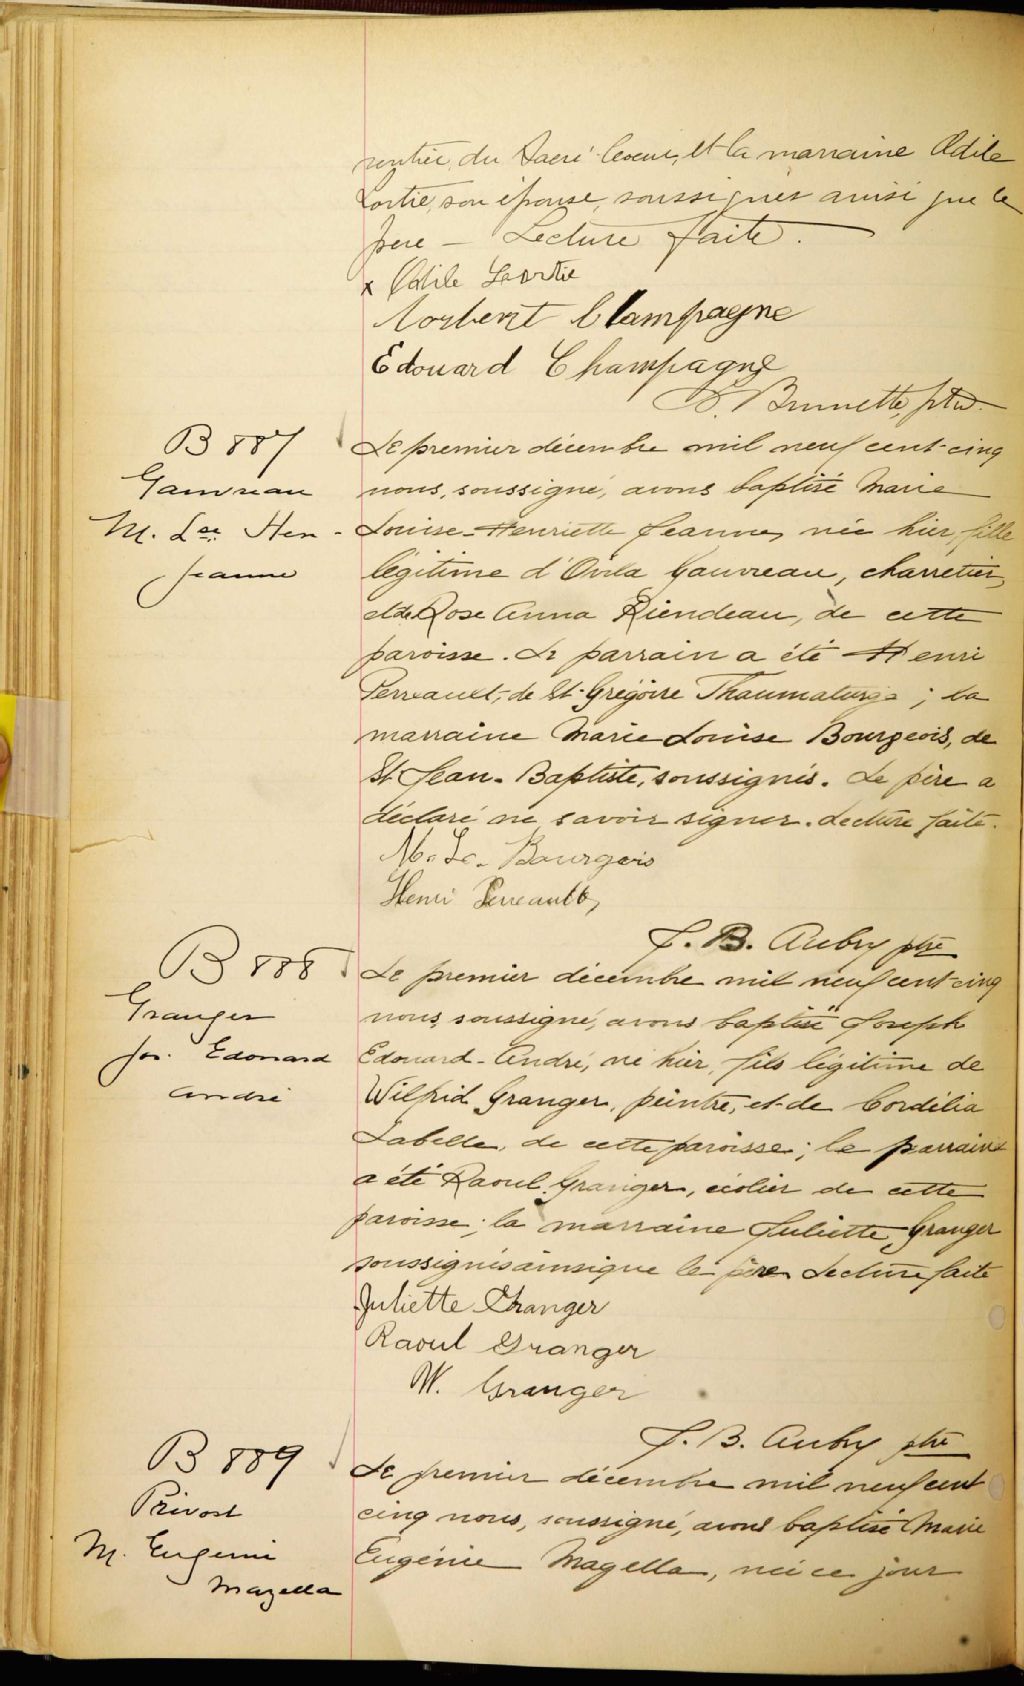 rentier, du Sacré-Coeur, et la marraine Odile
Lortie, son épouse, soussignés ainsi que le
père — Lecture faite.
x Odile Lortie
Norbert Champagne
Edouard Champagne
Brunette, ptre
B 887
Gauvreau
M. Lse Hen-
Jeanne
Le premier décembre mil neuf cent-cinq
nous, soussigné, avons baptisé Marie
Louise-Henriette Jeanne, née hier, fille
légitime d'Ovila Gauvreau, charretier,
et de Rose Anna Riendeau, de cette
paroisse. Le parrain a été Henri
Perreault, de St-Grégoire Thaumaturge; la
marraine Marie Louise Bourgeois, de
St Jean-Baptiste, soussignés. Le père a
déclaré ne savoir signer. Lecture faite.
M. Ls. Bourgeois
Henri Perreault,
J. B. Aubry ptre
B 888
Granger
Jos. Edouard
André
Le premier décembre mil neuf cent-cinq
nous soussigné, avons baptisé Joseph
Edouard-André, né hier, fils légitime de
Wilfrid Granger, peintre, et de Cordélia
Labelle, de cette paroisse; le parrain
a été Raoul Granger, écolier de cette
paroisse; la marraine Juliette Granger
soussignés ainsi que le père Lecture faite
Juliette Granger
Raoul Granger
W. Granger
J. B. Aubry ptre
B 889
Prévost
M. Eugenie
Mazella
Le premier décembre mil neuf cent
cinq nous, soussigné, avons baptisé Marie
Eugénie Magella, née ce jour